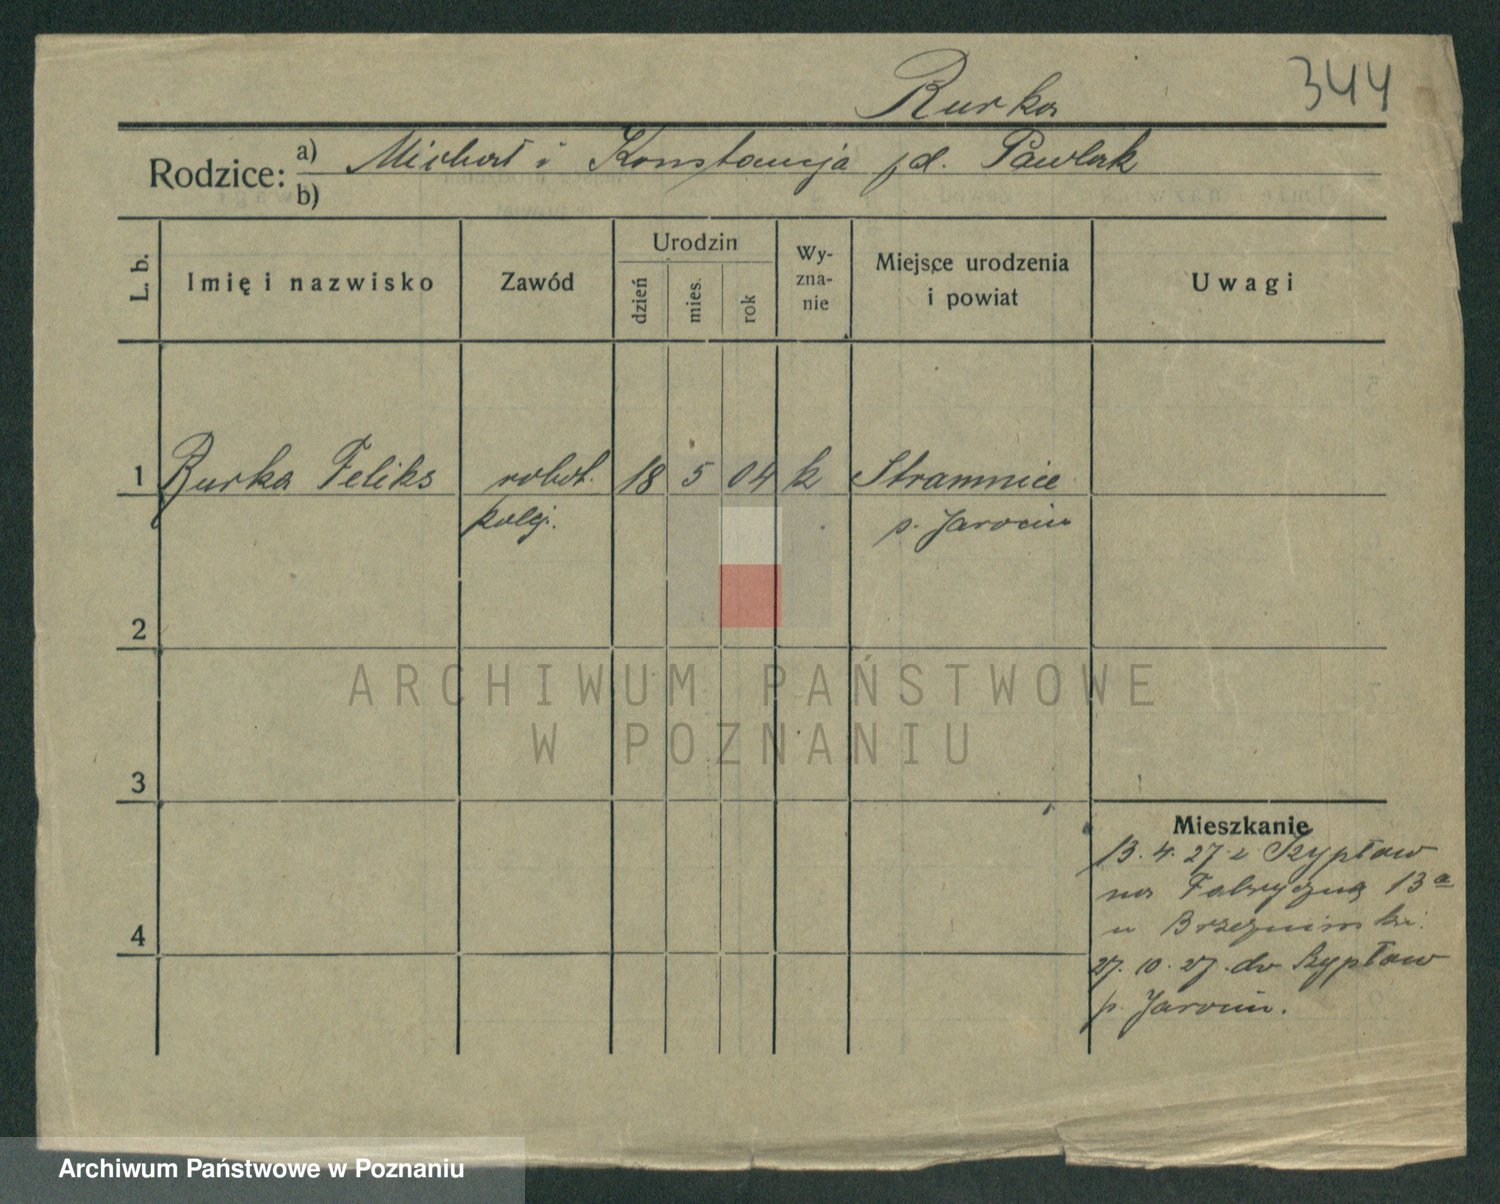 344
Rurka
Rodzice: a) Michał i Konstancja
b)
L. b.
Imię i nazwisko
Zawód
Urodzin
dzień
mies.
rok
Wy-
zna-
nie
Miejsce urodzenia
i powiat
Uwagi
1 Rurka Feliks robot. 18 5 04 k
kolej. p. Jarocin
2
3
4
Mieszkanie
13.4.27 z
na Fabryczną 13a
u
27.10.27 do
p. Jarocin.
ARCHIWUM PAŃSTWOWE
W POZNANIU
Archiwum Państwowe w Poznaniu